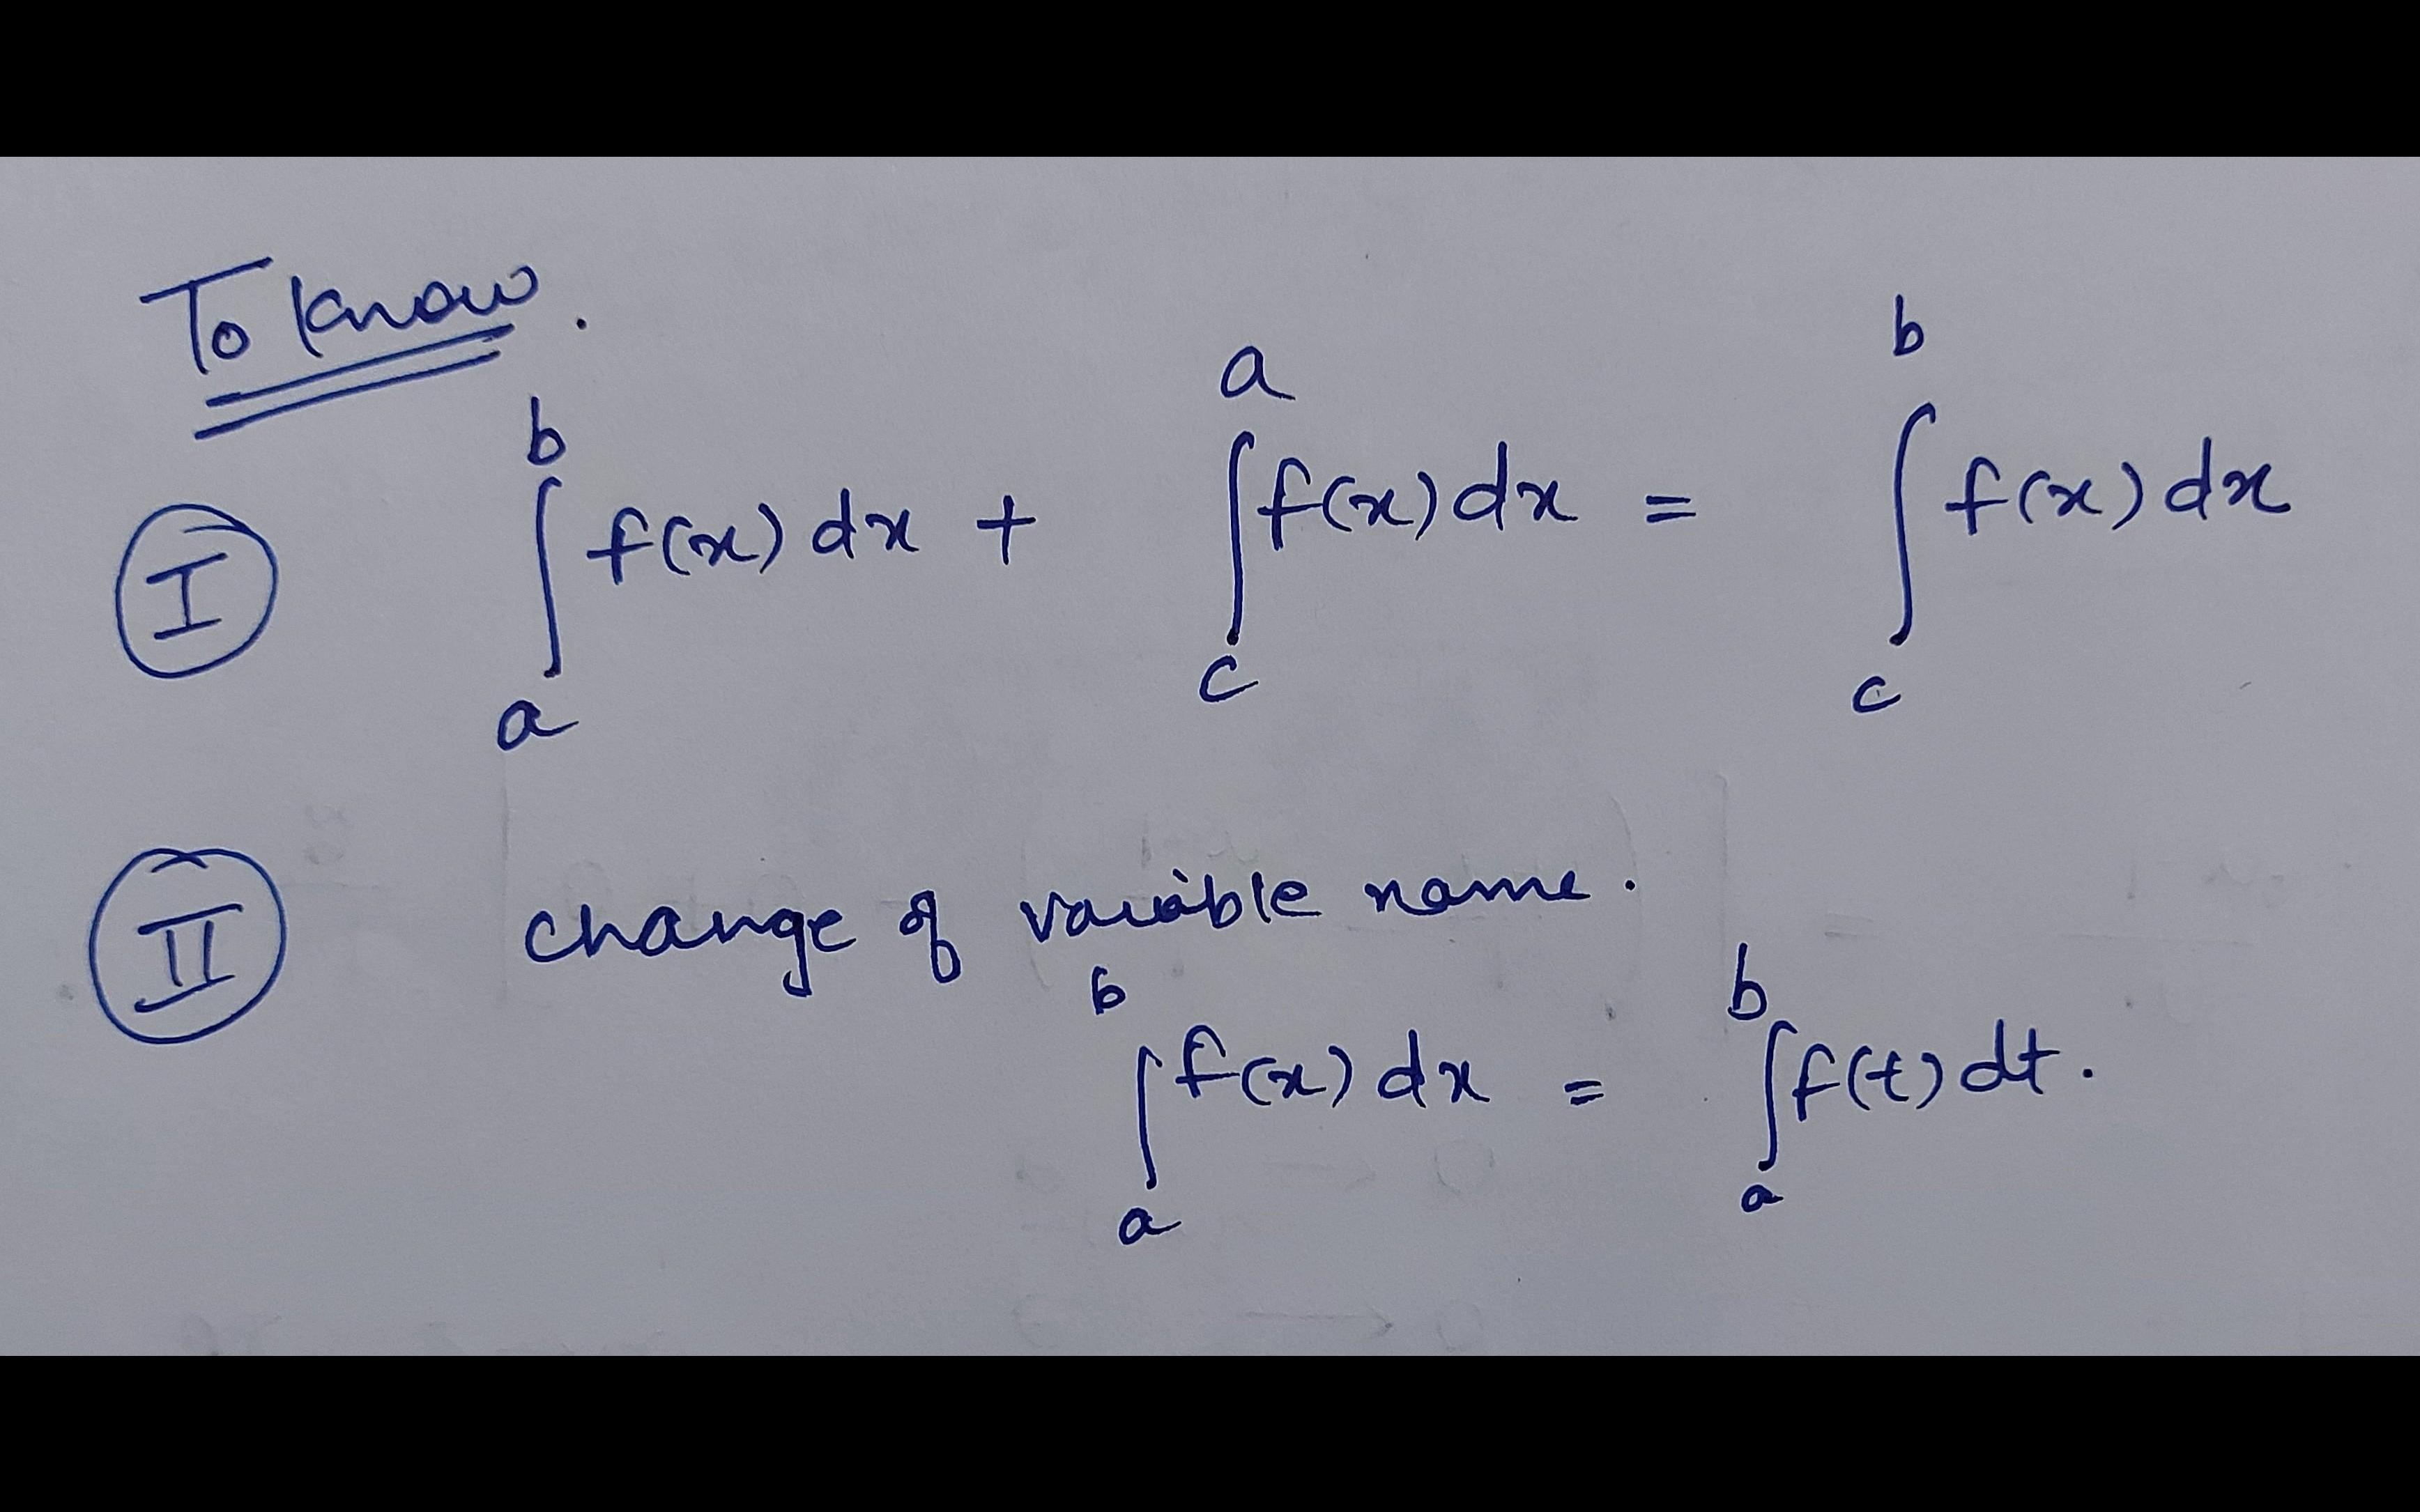 To know.
I ∫_a^b f(x) dx + ∫_c^a f(x) dx = ∫_c^b f(x) dx
II change of variable name.
∫_a^b f(x) dx = ∫_a^b f(t) dt.